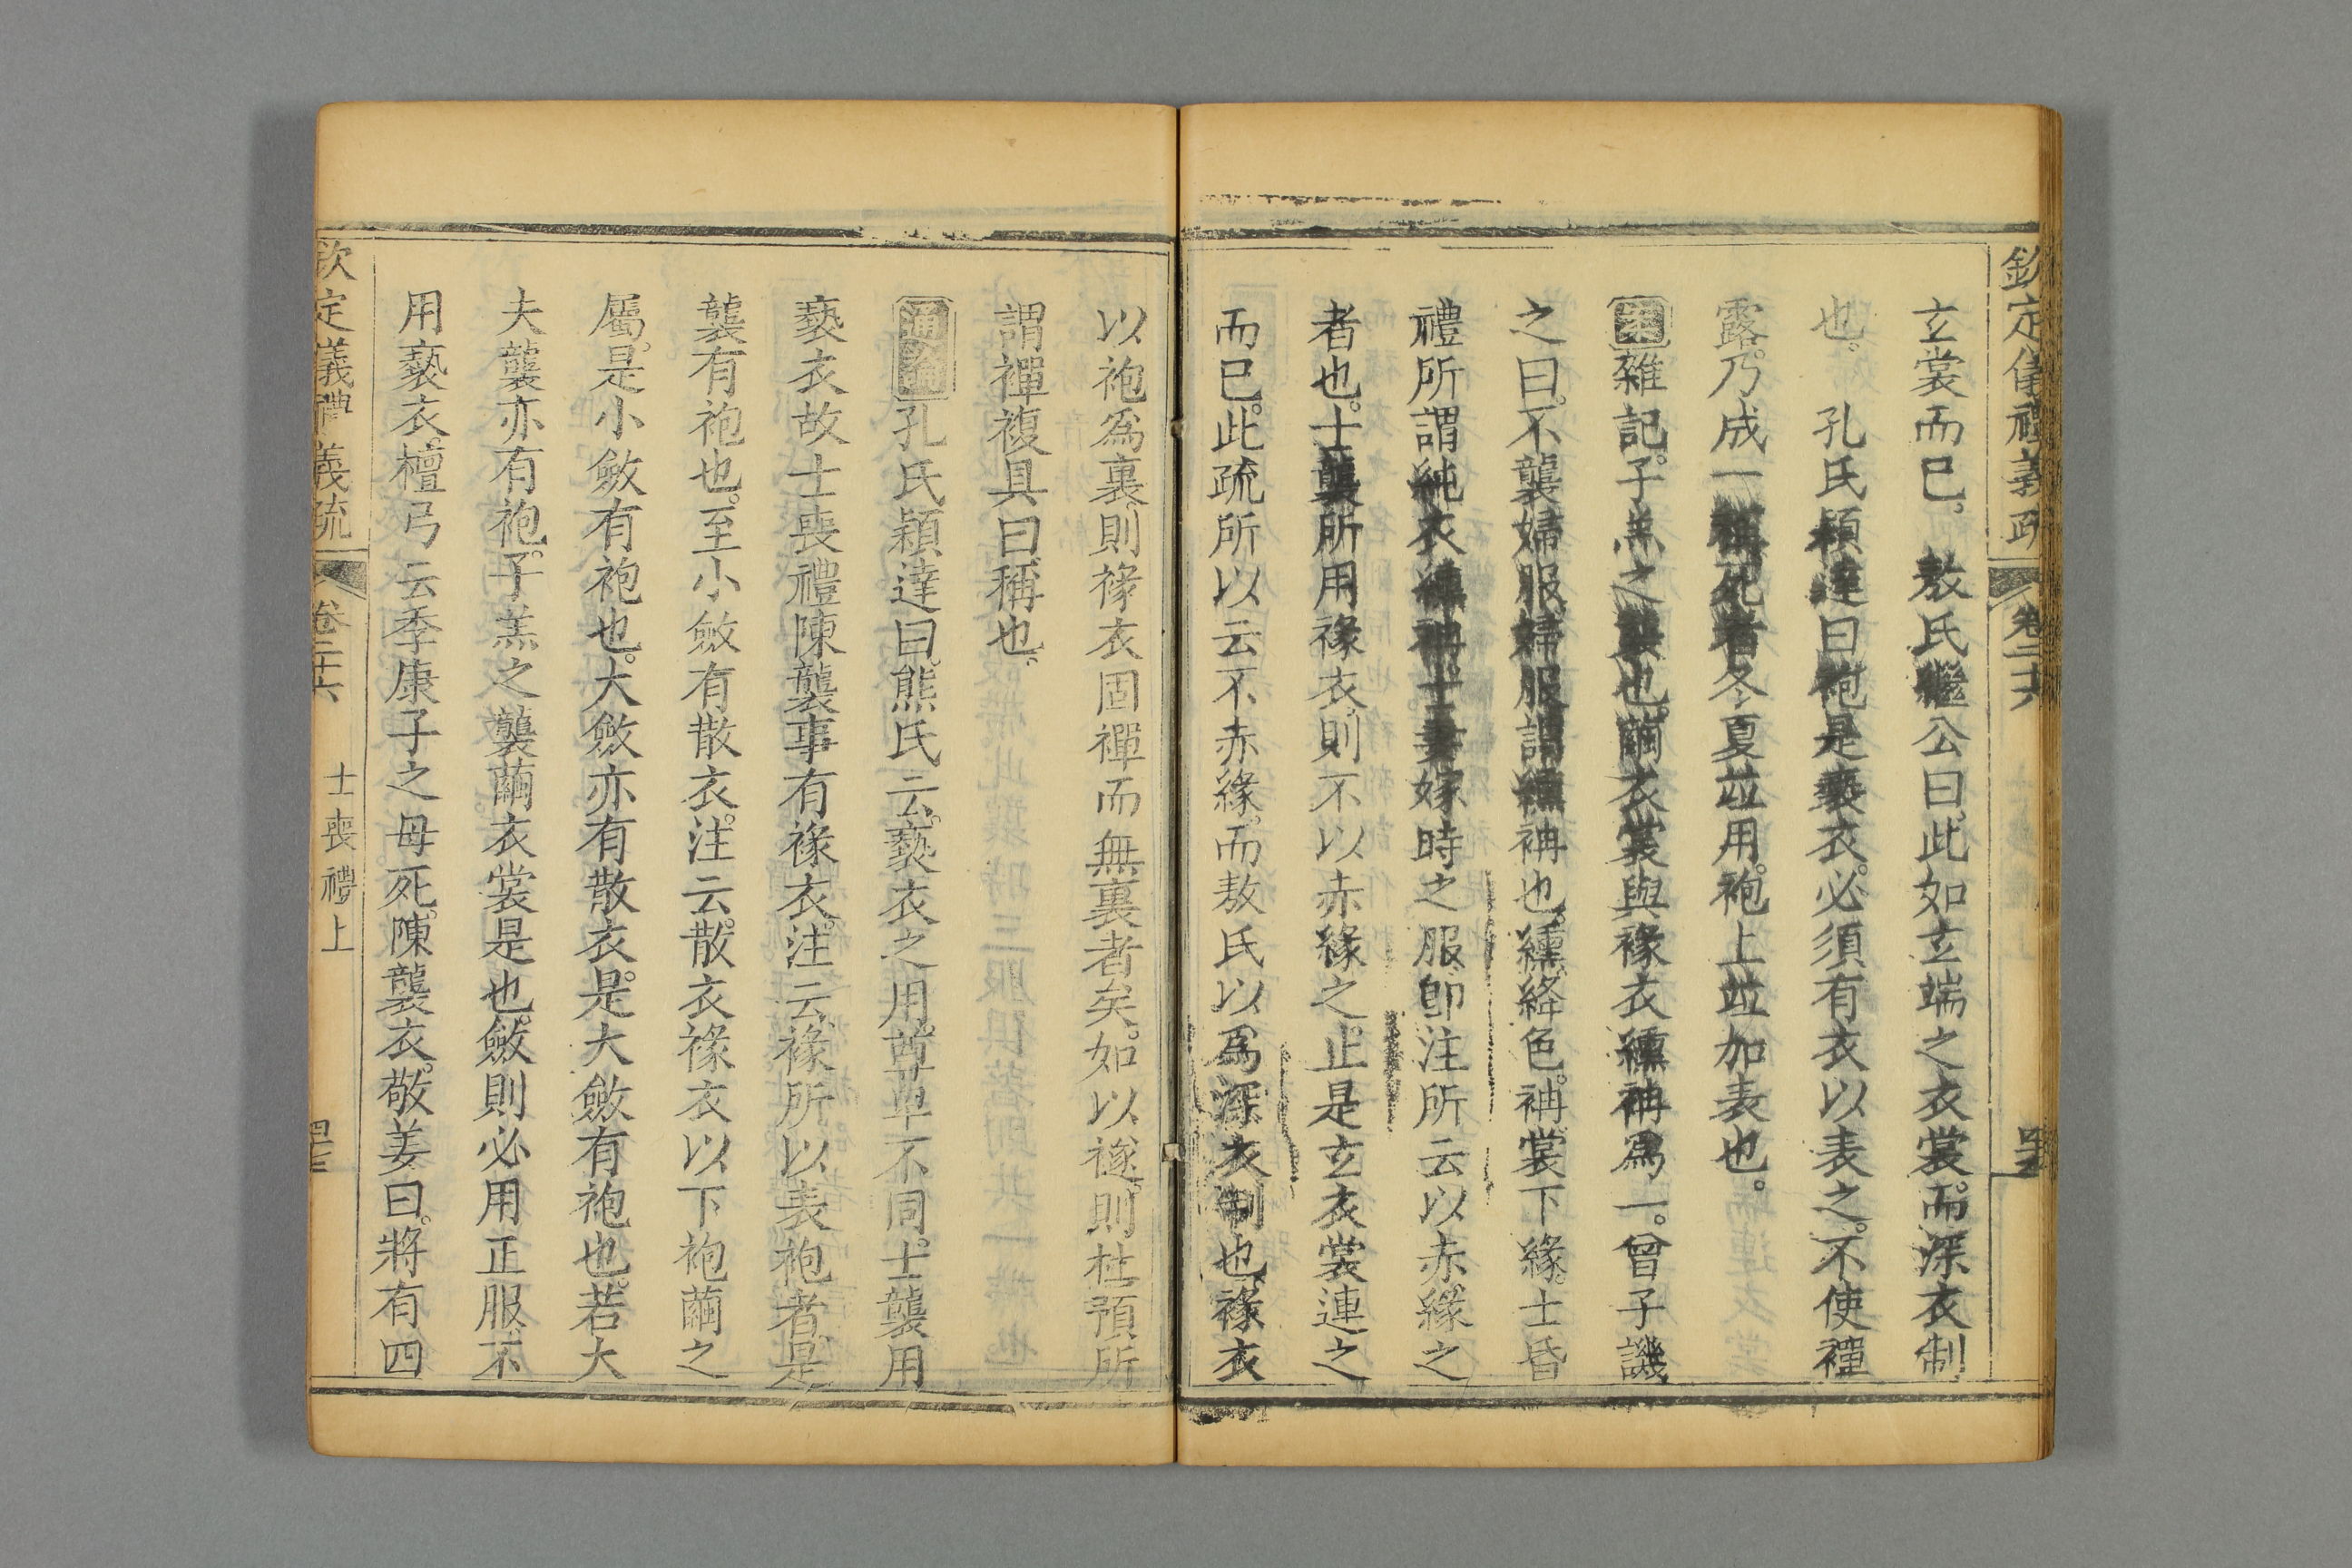 欽定儀禮義疏 卷二十六
玄裳而已。 敖氏繼公曰此如玄端之衣裳。而深衣制
也。 孔氏穎達曰袍是褻衣。必須有衣以表之。不使襌
露。乃成一稱死者冬夏並用。袍上並加表也。
案雜記。子羔之襲也。繭衣裳與褖衣纁袡爲一。曾子譏
之曰。不襲婦服婦服謂纁袡也。纁絳色。袡裳下緣。士昏
禮所謂純衣纁袡。士妻嫁時之服。卽注所云以赤緣之
者也。士襲所用褖衣則不以赤緣之。止是玄衣裳連之
而已。此疏所以云不赤緣。而敖氏以爲深衣制也。褖衣
以袍爲裏。則褖衣固襌而無裏者矣。如以襚。則杜預所
謂襌複具曰稱也。
通論孔氏穎達曰。熊氏云。褻衣之用。尊卑不同。士襲用
褻衣故士喪禮陳襲事有褖衣。注云褖所以表袍者。是
襲有袍也。至小斂有散衣。注云。散衣褖衣以下袍繭之
屬。是小斂有袍也。大斂亦有散衣。是大斂有袍也。若大
夫襲亦有袍。子羔之襲繭衣裳是也。斂則必用正服。不
用褻衣。檀弓云季康子之母死。陳褻衣。敬姜曰。將有四
欽定儀禮義疏 卷二十六 士喪禮上